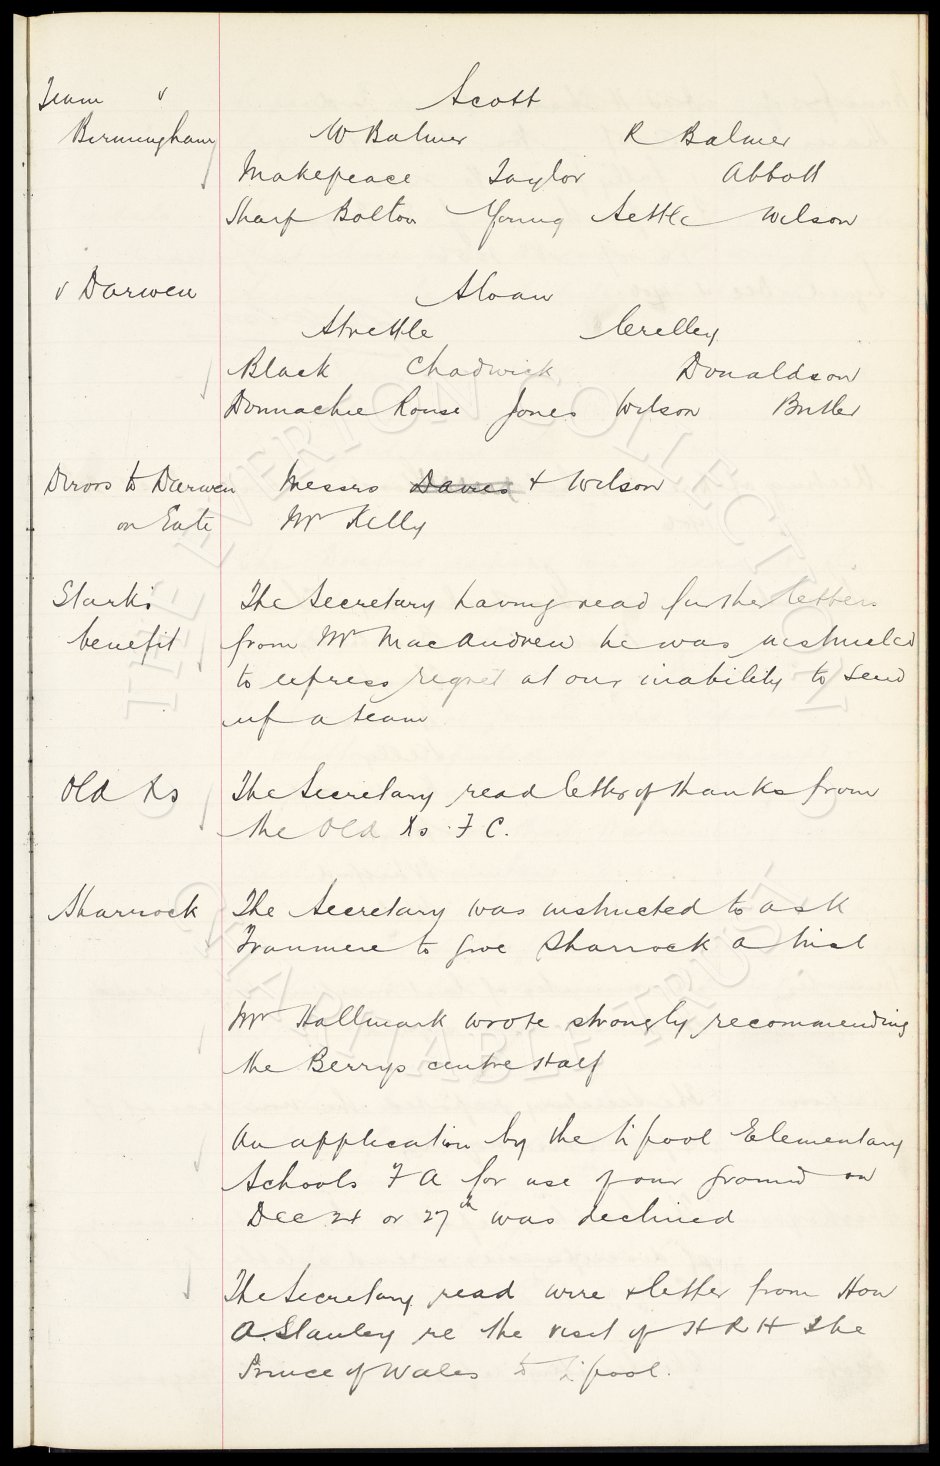 Team v Scott
Birmingham W Balmer R Balmer
Makepeace Taylor Abbott
Sharp Bolton Young Settle Wilson
v Darwen Sloan
Strettle Crelley
Black Chadwick Donaldson
Donnachie Rouse Jones Wilson Butler
Dirors to Darwen Messrs Davies & Wilson
on Gate Mr Kelly
Stark's The Secretary having read further letters
benefit from Mr MacAndrew he was instructed
to express regret at our inability to send
up a team
Old Xs The Secretary read letter of thanks from
the Old Xs F C.
Sharrock The Secretary was instructed to ask
Tranmere to give Sharrock a trial
Mr Hallmark wrote strongly recommending
the Berrys centre Half
An application by the L'pool Elementary
Schools F A for use of our ground on
Dec 24 or 27th was declined
The Secretary read wire & letter from Hon
A. Stanley re the visit of H R H The
Prince of Wales to L'pool.
THE EVERTON COLLECTION
CHARITABLE TRUST